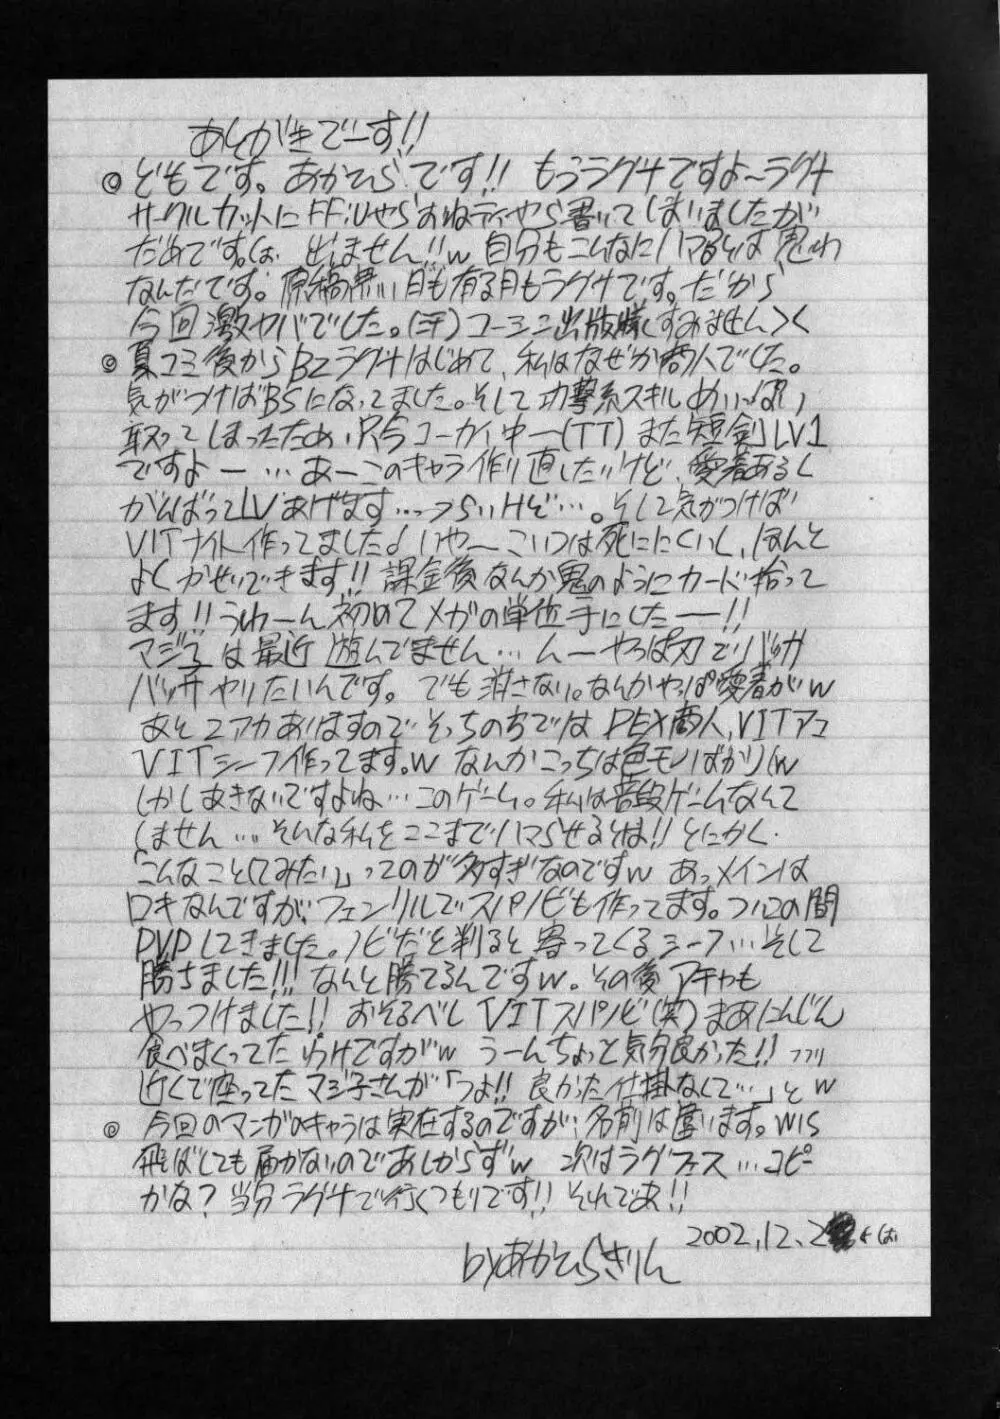 あとがきでーす!!
◎ どもです。あかひらです!! もうラグナですよ〜ラグナ
サークルカットにFF:Uやらおねティやら書いてしまいましたが
だめです。出ません!!w 自分もこんなにハマるとは思わ
なんだです。原稿無い日も有る日もラグナです。だから
今回激ヤバでした。(汗)コーシン出版様すみません><
◎ 夏コミ後からβ2ラグナはじめて、私はなぜか商人でした。
気がつけばBSになってました。そして攻撃系スキルめいっぱい
取ってしまったため、只今コーカイ中ー(TT) また短剣LV1
ですよー…あーこのキャラ作り直したいけど、愛着あるし
がんばってLVあげます…つらいけど…。そして気がつけば
VITナイト作ってました♪いやーこいつは死ににくいし、ほんと
よくかせいできます!!課金後なんか鬼のようにカード拾って
ます!!うわーん初めてメガの単位手にしたーー!!
マジ子は最近遊んでません…んーやっぱ刃でバッサ
バッサやりたいんです。でも消さない。なんかやっぱ愛着がw
あと2アカありますので、そっちの方では DEX商人,VITアコ
VITシーフ作ってます。w なんかこっちは色モノばかりw
しかしあきないですよね…このゲーム。私は普段ゲームなんて
しません…そんな私をここまでハマらせるとは!!とにかく
「こんなことしてみたい」ってのが多すぎなのですw あっメインは
ロキなんですが、フェンリルでスパノビも作ってます。ついこの間
PVPしてきました。ノビだと判ると寄ってくるシーフ…そして
勝ちました!!!なんと勝てるんですw。その後アチャも
やっつけました!!おそるべし VITスパノビ(笑)まあにんじん
食べまくってたわけですがw うーんちょっと気分良かった!! フフリ
近くで座ってたマジ子さんが「つよ!! 良かった仕掛なくて…」とw
◎ 今回のマンガのキャラは実在するのですが、名前は違います。WIS
飛ばしても届かないのであしからずw 次はラグフェス…コピー
かな?当分ラグナで行くつもりです!!それでわ!!
2002,12,2
byあかひらきりん